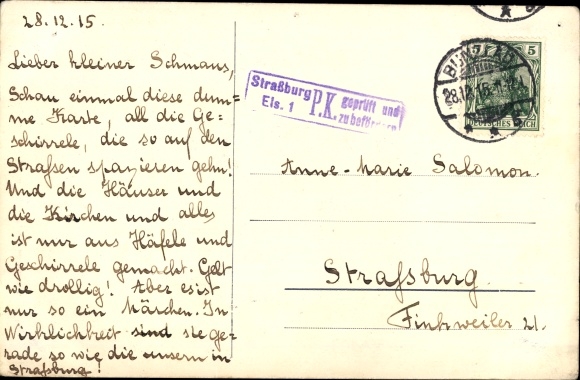 28.12.15.
Lieber kleiner Schmaus,
Schau einmal diese dum-
me Karte, all die Ge-
schirrele, die so auf den
Straßen spazieren gehn!
Und die Häuser und
die Kirchen und alles
ist nur aus Häfele und
Geschirrele gemacht. Gelt
wie drollig! Aber es ist
nur so ein Märchen. In
Wirklichkeit sind sie ge-
rade so wie die unsern in
Straßburg!
Straßburg
Els. 1
P.K.
geprüft und
zu befördern
28.12.15
5
DEUTSCHES REICH
Anne-Marie Salomon.
Straßburg
Finkweiler 21.